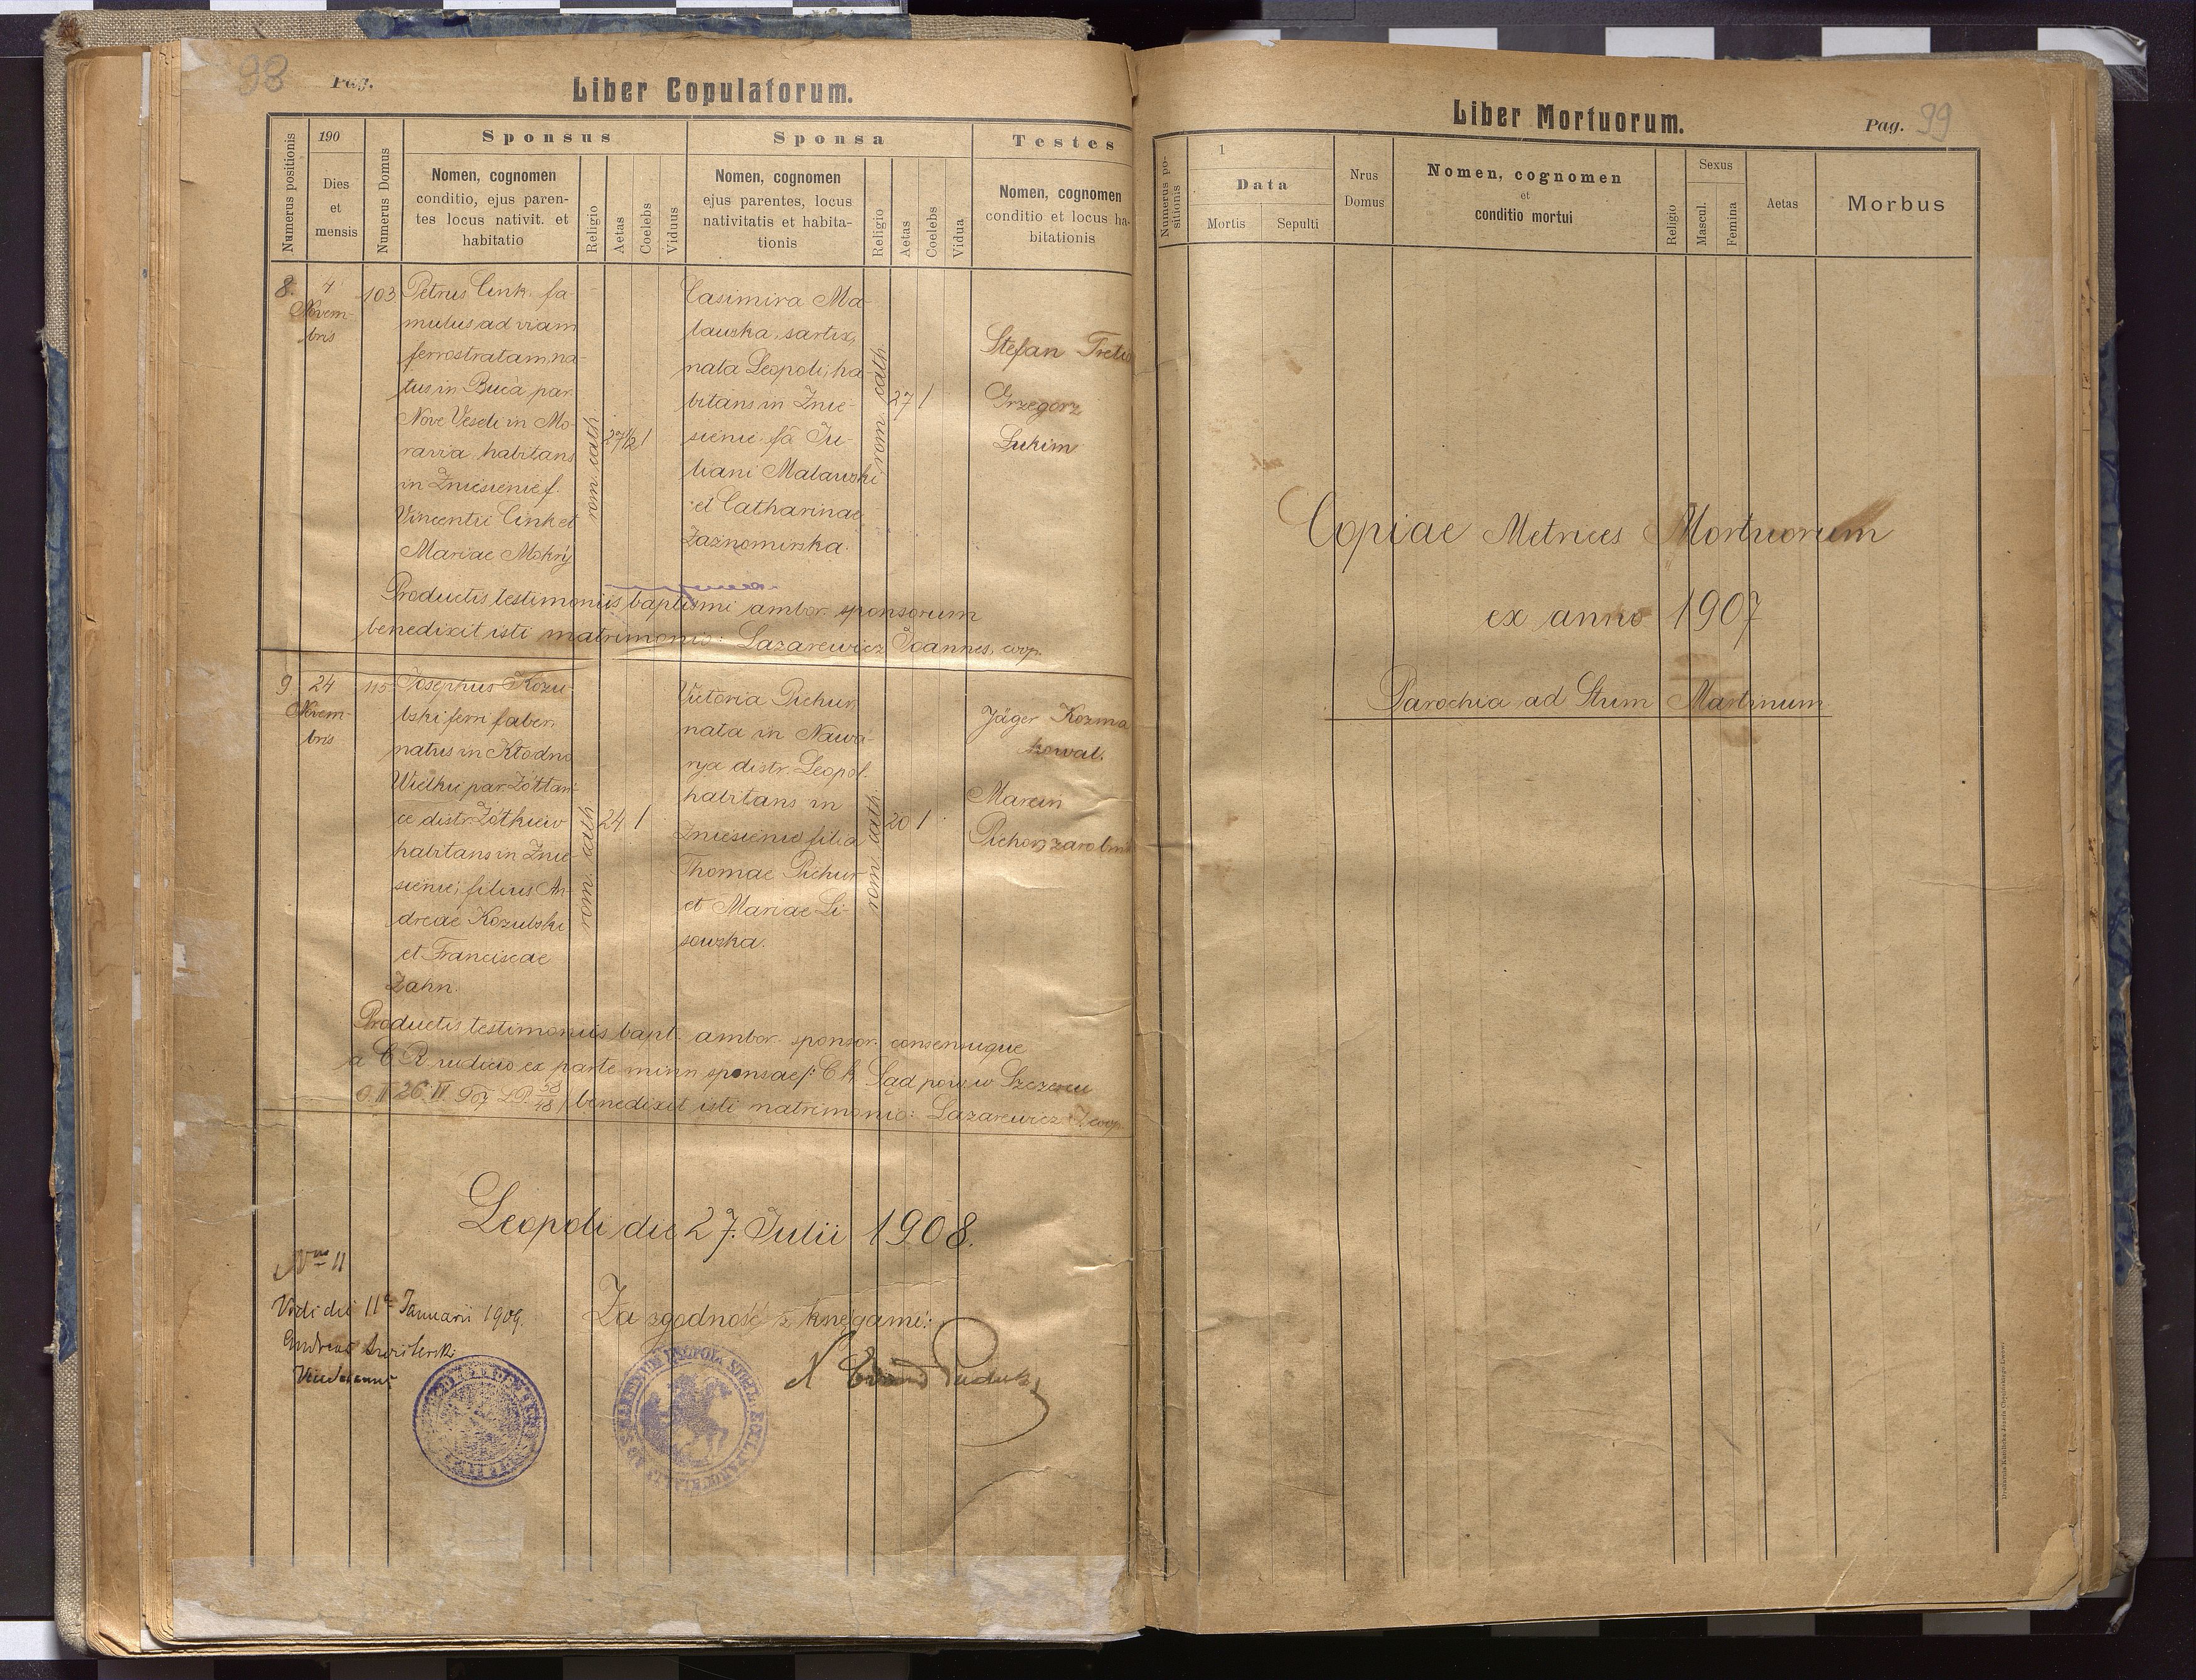 98
Pag.
Liber Copulatorum.
Numerus positionis
190
Dies
et
mensis
Numerus Domus
Sponsus
Nomen, cognomen
conditio, ejus paren-
tes locus nativit. et
habitatio
Religio
Aetas
Coelebs
Viduus
Sponsa
Nomen, cognomen
ejus parentes, locus
nativitatis et habita-
tionis
Religio
Aetas
Coelebs
Vidua
Testes
Nomen, cognomen
conditio et locus ha-
bitationis
8.
4
Novem-
bris
103
Petrus Cink fa-
mulus ad viam
ferrostratam, na-
tus in Buca par.
Nove Veseli in Mo-
ravia habitans
in Zniesienie f.
Vincentii Cink et
Mariae Mokrý
rom. cath.
27 1/2
1
Casimira Ma-
lawska, sartix,
nata Leopoli, ha-
bitans in Znie-
sienie fa Ju-
liani Malawski
et Catharinae
Zaznomirska.
rom. cath.
27
1
Stefan
Grzegorz
Lukim
Productis testimoniis baptismi ambor. sponsorum
benedixit isti matrimonio: Lazarewicz Joannes, coop.
9
24
Novem-
bris
115
Josephus Kozu-
bski ferri faber,
natus in Kłodno
Wielkie par. Żółtań-
ce distr. Żółkiew
habitans in Znie-
sienie, filius An-
dreae Kozubski
et Franciscae
Zahn.
rom. cath.
24
1
Victoria Pichur
nata in Nawa-
rya distr. Leopol.
habitans in
Zniesienie filia
Thomae Pichur
et Mariae Li-
sowska.
rom. cath.
20
1
Jäger Kozma
kowal.
Marcin
Pichur zarobnik
Productis testimoniis bapt. ambor. sponsor. consensuque
a C. R. iudicio ex parte minn sponsae /: C. k. Sąd pow. w Szczercu
O. II 26. II 907 L.P. 58/48 / benedixit isti matrimonio: Lazarewicz J. coop.
Leopoli die 27. Julii 1908.
Nrus 11
Vidi die 11a Januarii 1909.
Za zgodność z księgami:
Andreas
Liber Mortuorum.
Pag. 99
Numerus po-
sitionis
1
Data
Mortis
Sepulti
Nrus
Domus
Nomen, cognomen
et
conditio mortui
Religio
Sexus
Mascul.
Femina
Aetas
Morbus
Copiae Metrices Mortuorum
ex anno 1907
Parochia ad Stum Martinum